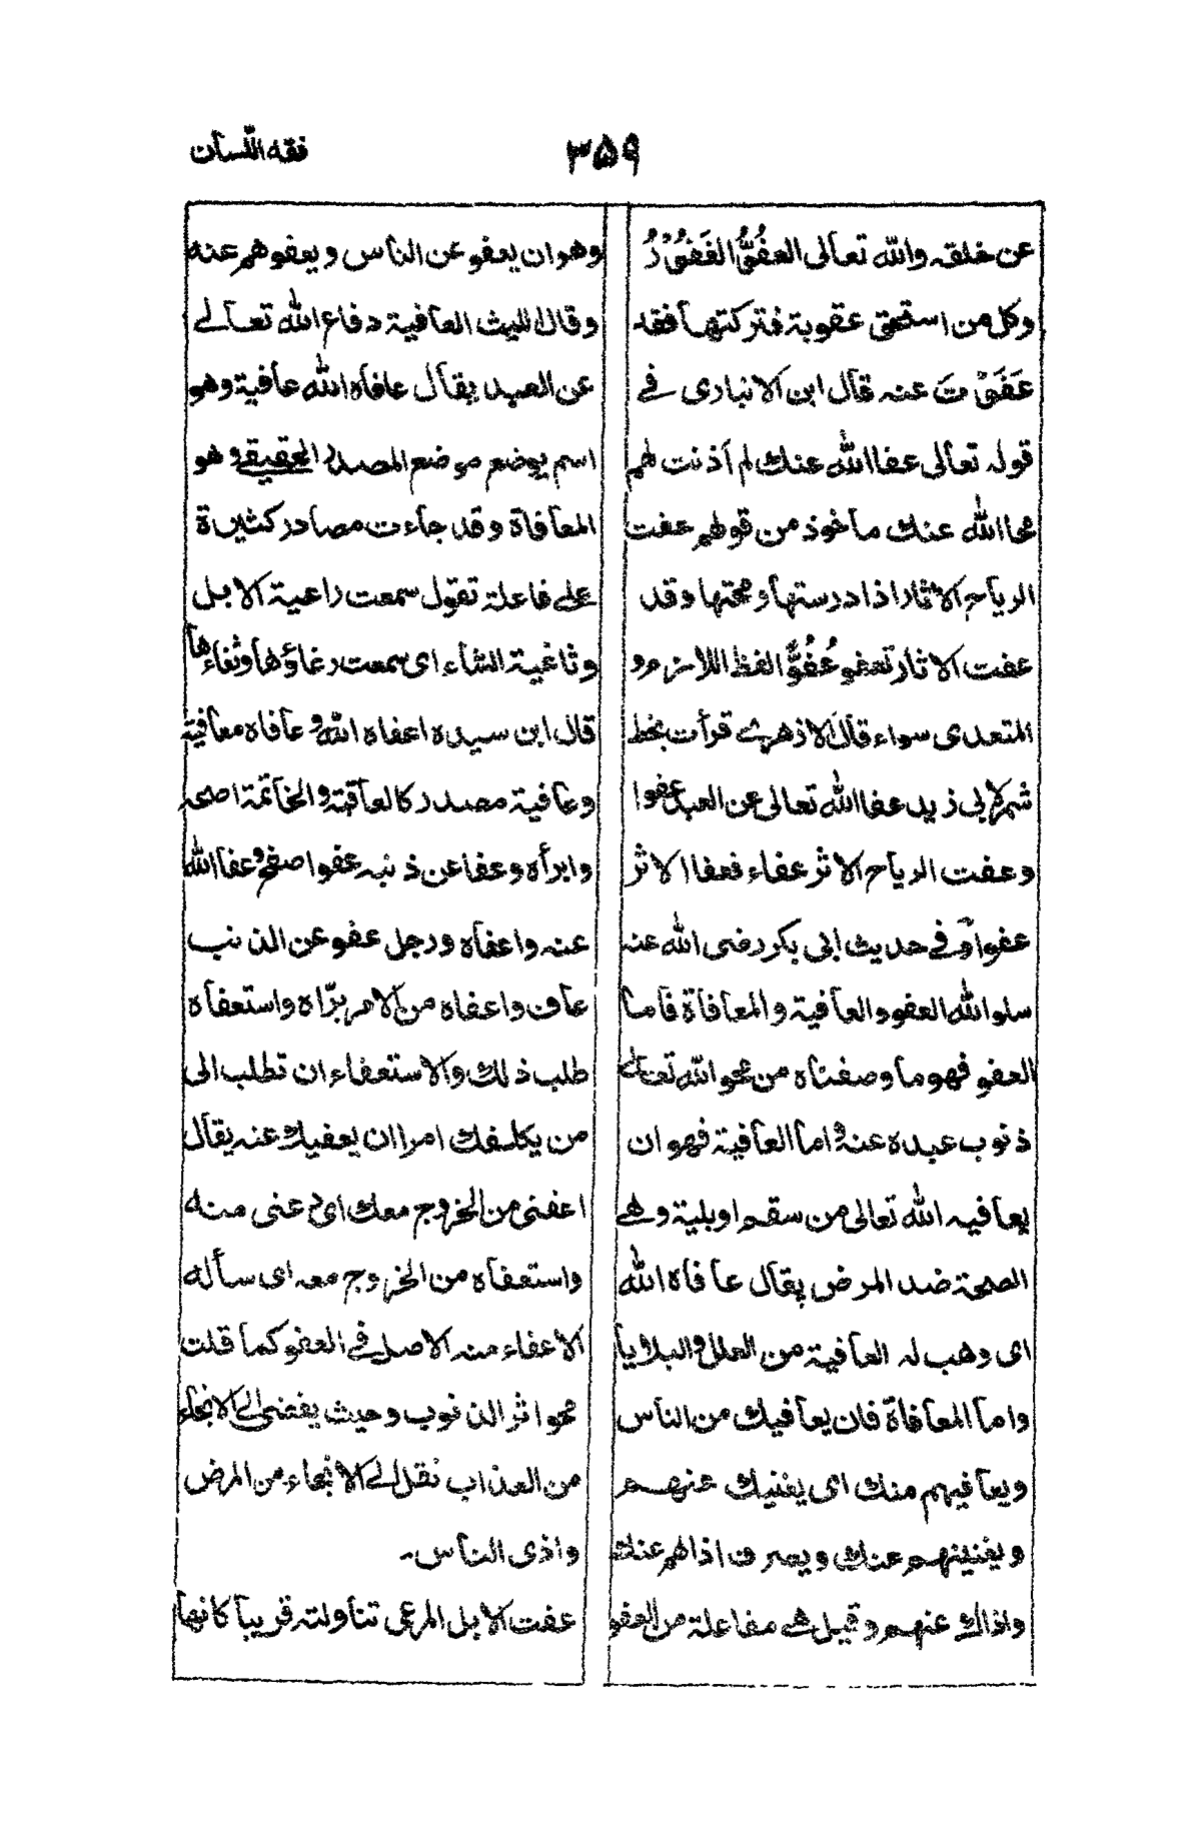 فقه اللسان
۳۵۹
عن خلقه والله تعالى العفُوُّ الغَفُوْرُ
وكل من استحق عقوبة فتركتها فقد
عَفَوْتَ عنه قال ابن الانبارى فے
قوله تعالى عفا الله عنك لم أذنت لهم
محا الله عنك ماخوذ من قولهم عفت
الرياح الاثار اذا درستها ومحتها وقد
عفت الاثار تعفو عُفُوًّا لفظ اللازم و
المتعدى سواء قال الازهرے قرأت بخط
شمر لابى زيد عفا الله تعالى عن العبد عفوا
وعفت الرياح الاثر عفاء فعفا الاثر
عفوا وفے حديث ابى بكر رضى الله عنه
سلوا الله العفو والعافية والمعافاة فاما
العفو فهو ما وصفناه من محو الله تعالے
ذنوب عبده عنه واما العافية فهو ان
يعافيه الله تعالى من سقم او بلية وهے
الصحة ضد المرض يقال عافاه الله
اى وهب له العافية من العلل والبلايا
واما المعافاة فان يعافيك من الناس
ويعافيهم منك اى يغنيك عنهم
ويغنيهم عنك ويصرف اذاهم عنك
واذاك عنهم وقيل هے مفاعلة من العفو
وهو ان يعفو عن الناس ويعفوهم عنه
وقال الليث العافية دفاع الله تعالے
عن العبد يقال عافاه الله عافية وهو
اسم يوضع موضع المصدر الحقيقے وهو
المعافاة وقد جاءت مصادر كثيرة
علے فاعلة تقول سمعت راعية الابل
وثاغية الشاء اى سمعت رغاؤها وثغاءها
قال ابن سيده اعفاه الله وعافاه معافية
وعافية مصدر كالعاقبة والخاتمة اصحه
وابرأه وعفا عن ذنبه عفوا صفح وعفا الله
عنه واعفاه ورجل عفو عن الذنب
عاف واعفاه من الامر برّاه واستعفاه
طلب ذلك والاستعفاء ان تطلب الى
من يكلفك امرا ان يعفيك عنه يقال
اعفنى من الخروج معك اى دعنى منه
واستعفاه من الخروج معه اى سأله
الاعفاء منه الاصل فے العفو كما قلت
محو اثر الذنوب وحيث يفضى الے الانجاء
من العذاب نقل الے الانجاء من المرض
واذى الناس۔
عفت الابل المرعى تناولته قريبا كانها